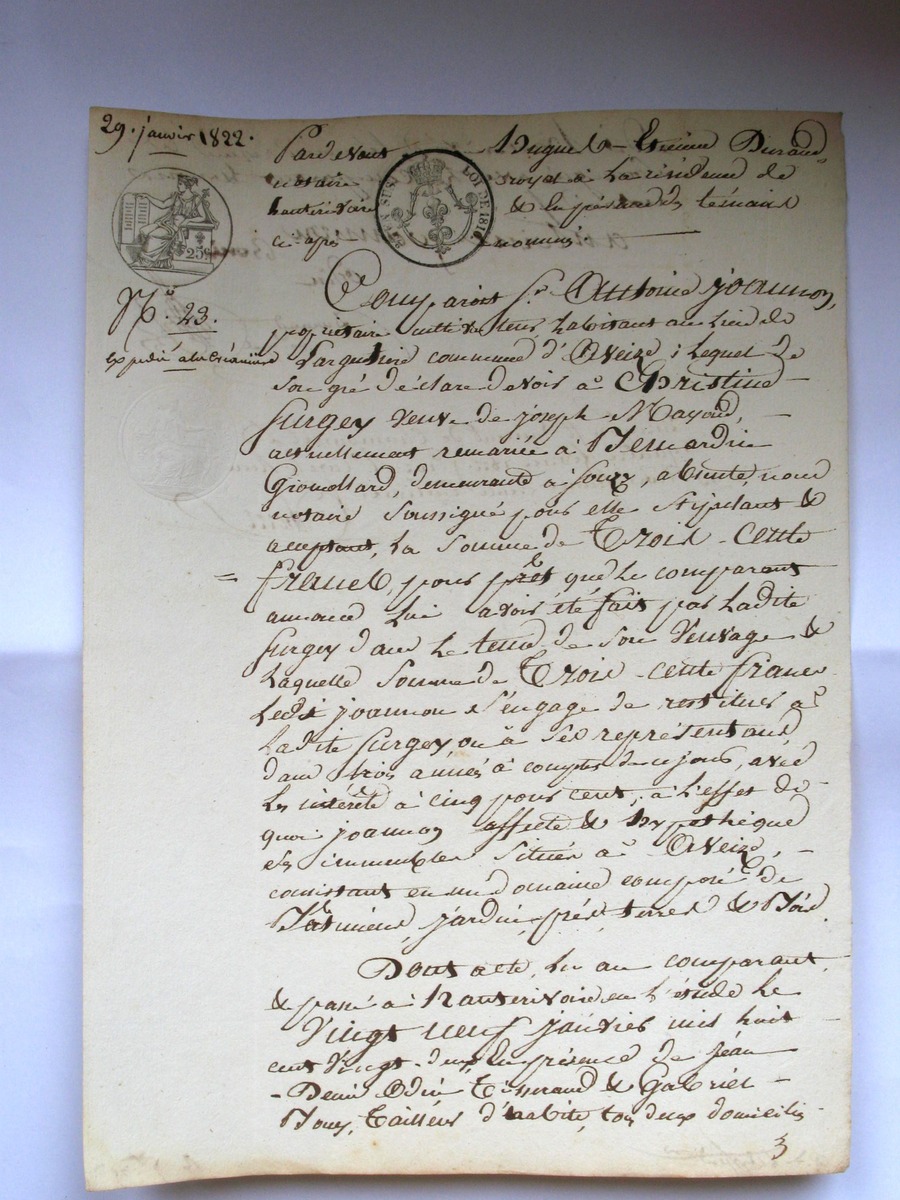 29. janvier 1822.
Pardevant hugues Etienne Durand
notaire royal à la résidence de
hauterivoire & en présence des témoins
ci après nommés
LOI DE 1816
25c
N.o 23.
expédié au créancier
Comparoit Sr. Antoine joannon,
propriétaire cultivateur, habitant au lieu de
Larguliere commune d'Aveize ; lequel de
son gré déclare devoir à Christine
Surgey veuve de joseph Mayoud,
actuellement remariée à Bernardin
demeurante à Souzy, absente, nous
notaire soussigné pour elle stipulant &
acceptant, la somme de Trois-cents
francs, pour prêt que le comparant
annonce lui avoir été fait par ladite
Surgey dans le tems de son veuvage &
laquelle somme de Trois-cents francs
ledit joannon s'engage de restituer à
ladite Surgey, ou à ses représentans
dans trois années à compter de ce jour, avec
les intérêts à cinq pour cent, à l'effet de
quoi joannon affecte & hypothèque
ses immeubles situés à Aveize,
consistant en un domaine composé de
Bâtimens, jardin, prés, terres & Bois.
Dont acte, lu au comparant,
& passé à hauterivoire en l'étude le
Vingt neuf janvier mil huit
cent vingt-deux en présence de jean
Denis Odin Tisserand & Gabriel
Tailleur d'habits, tous deux domiciliés
3